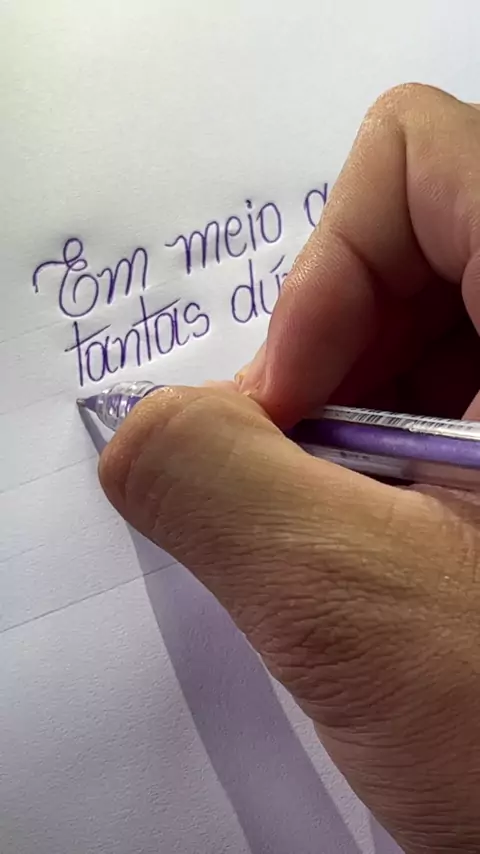 Em meio
tantas